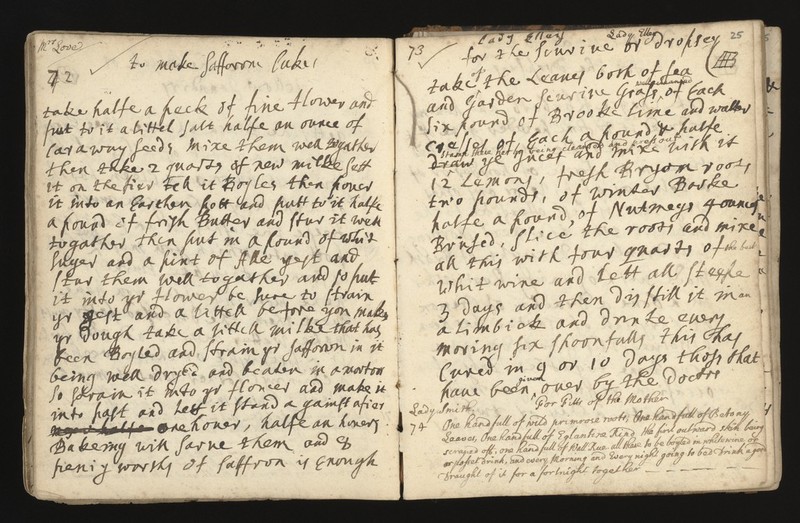 Mrs Love
72 to make Safforone Cakes
take halfe a peck of fine flower and
put to it a littel salt halfe an ounce of
Caraway seeds mixe them well togather
then take 2 quarts of new milke sett
it on the fier tell it Boyles then power
it into an Earthen pott and putt to it halfe
a pound of frish Butter and stur it well
togather then put in a pound of whit
suger and a pint of Alle yest and
stur them well togather and so put
it into yr flower be sure to strain
yr yest and a littell before you make
yr Dough take a littell milke that has
been Boyled and strain yr Safforon in it
being well dryed and beaten in a mortor
so strain it into yr flower and make it
into past and lett it stand a gainst a fier
one hower, halfe an howers
Bakeing will sarve them and 8
peniy worths of Saffron is Enough
Lady Elley Lady Elley 25
73 for the Scurvie or dropsey
take of the Leaves both of sea
and Garden Scurvie Grass of Each
six pound of Brooke lime and watter
Creses of Each a pound & halfe
stamp these hearbs being cleansed and press out
draw ye Juces and mixe with it
12 Lemons, fresh Bryom roots
two pounds, of Winter Barke
halfe a pound, of Nutmegs 4 ounces
Brused, slice the roots and mixe
all this with four quarts of the best
whit wine and lett all steepe
3 days and then disstill it in an
a limbick and drinke every
morning six spoonfulls this has
Cured in 9 or 10 days thoss that
have been given over by the Doctors
Lady Smith For Fitts of the Mother
74 One handfull of wild primroose roots, One handfull of Betony
Leaves, One handfull of Eglantine Rind the first outward skin being
scraped off, one handfull of Wall Rue all these to be boyled in whitewine, or
or posset drink, and every Morning and Every night going to bed Drink a good
Draught of it for a fortnight together